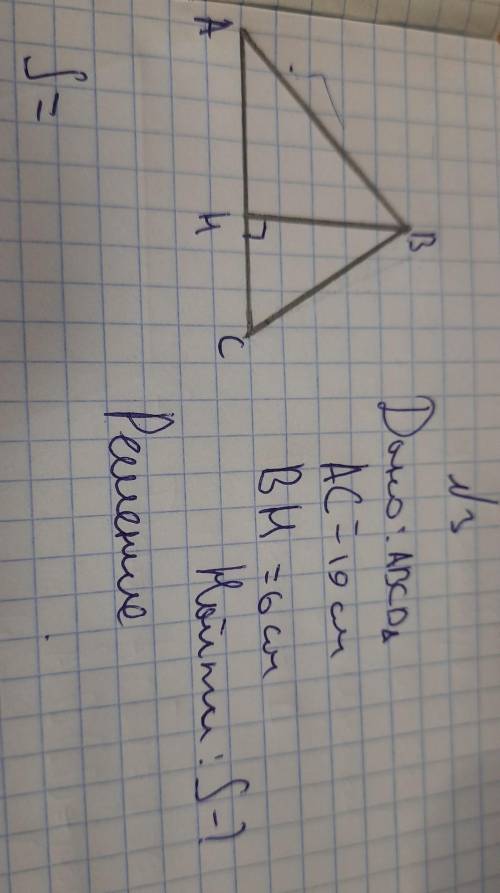 №3
A
B
H
C
Дано: ABCD Δ
AC = 10 см
BH = 6 см
Найти: S - ?
Решение
S =